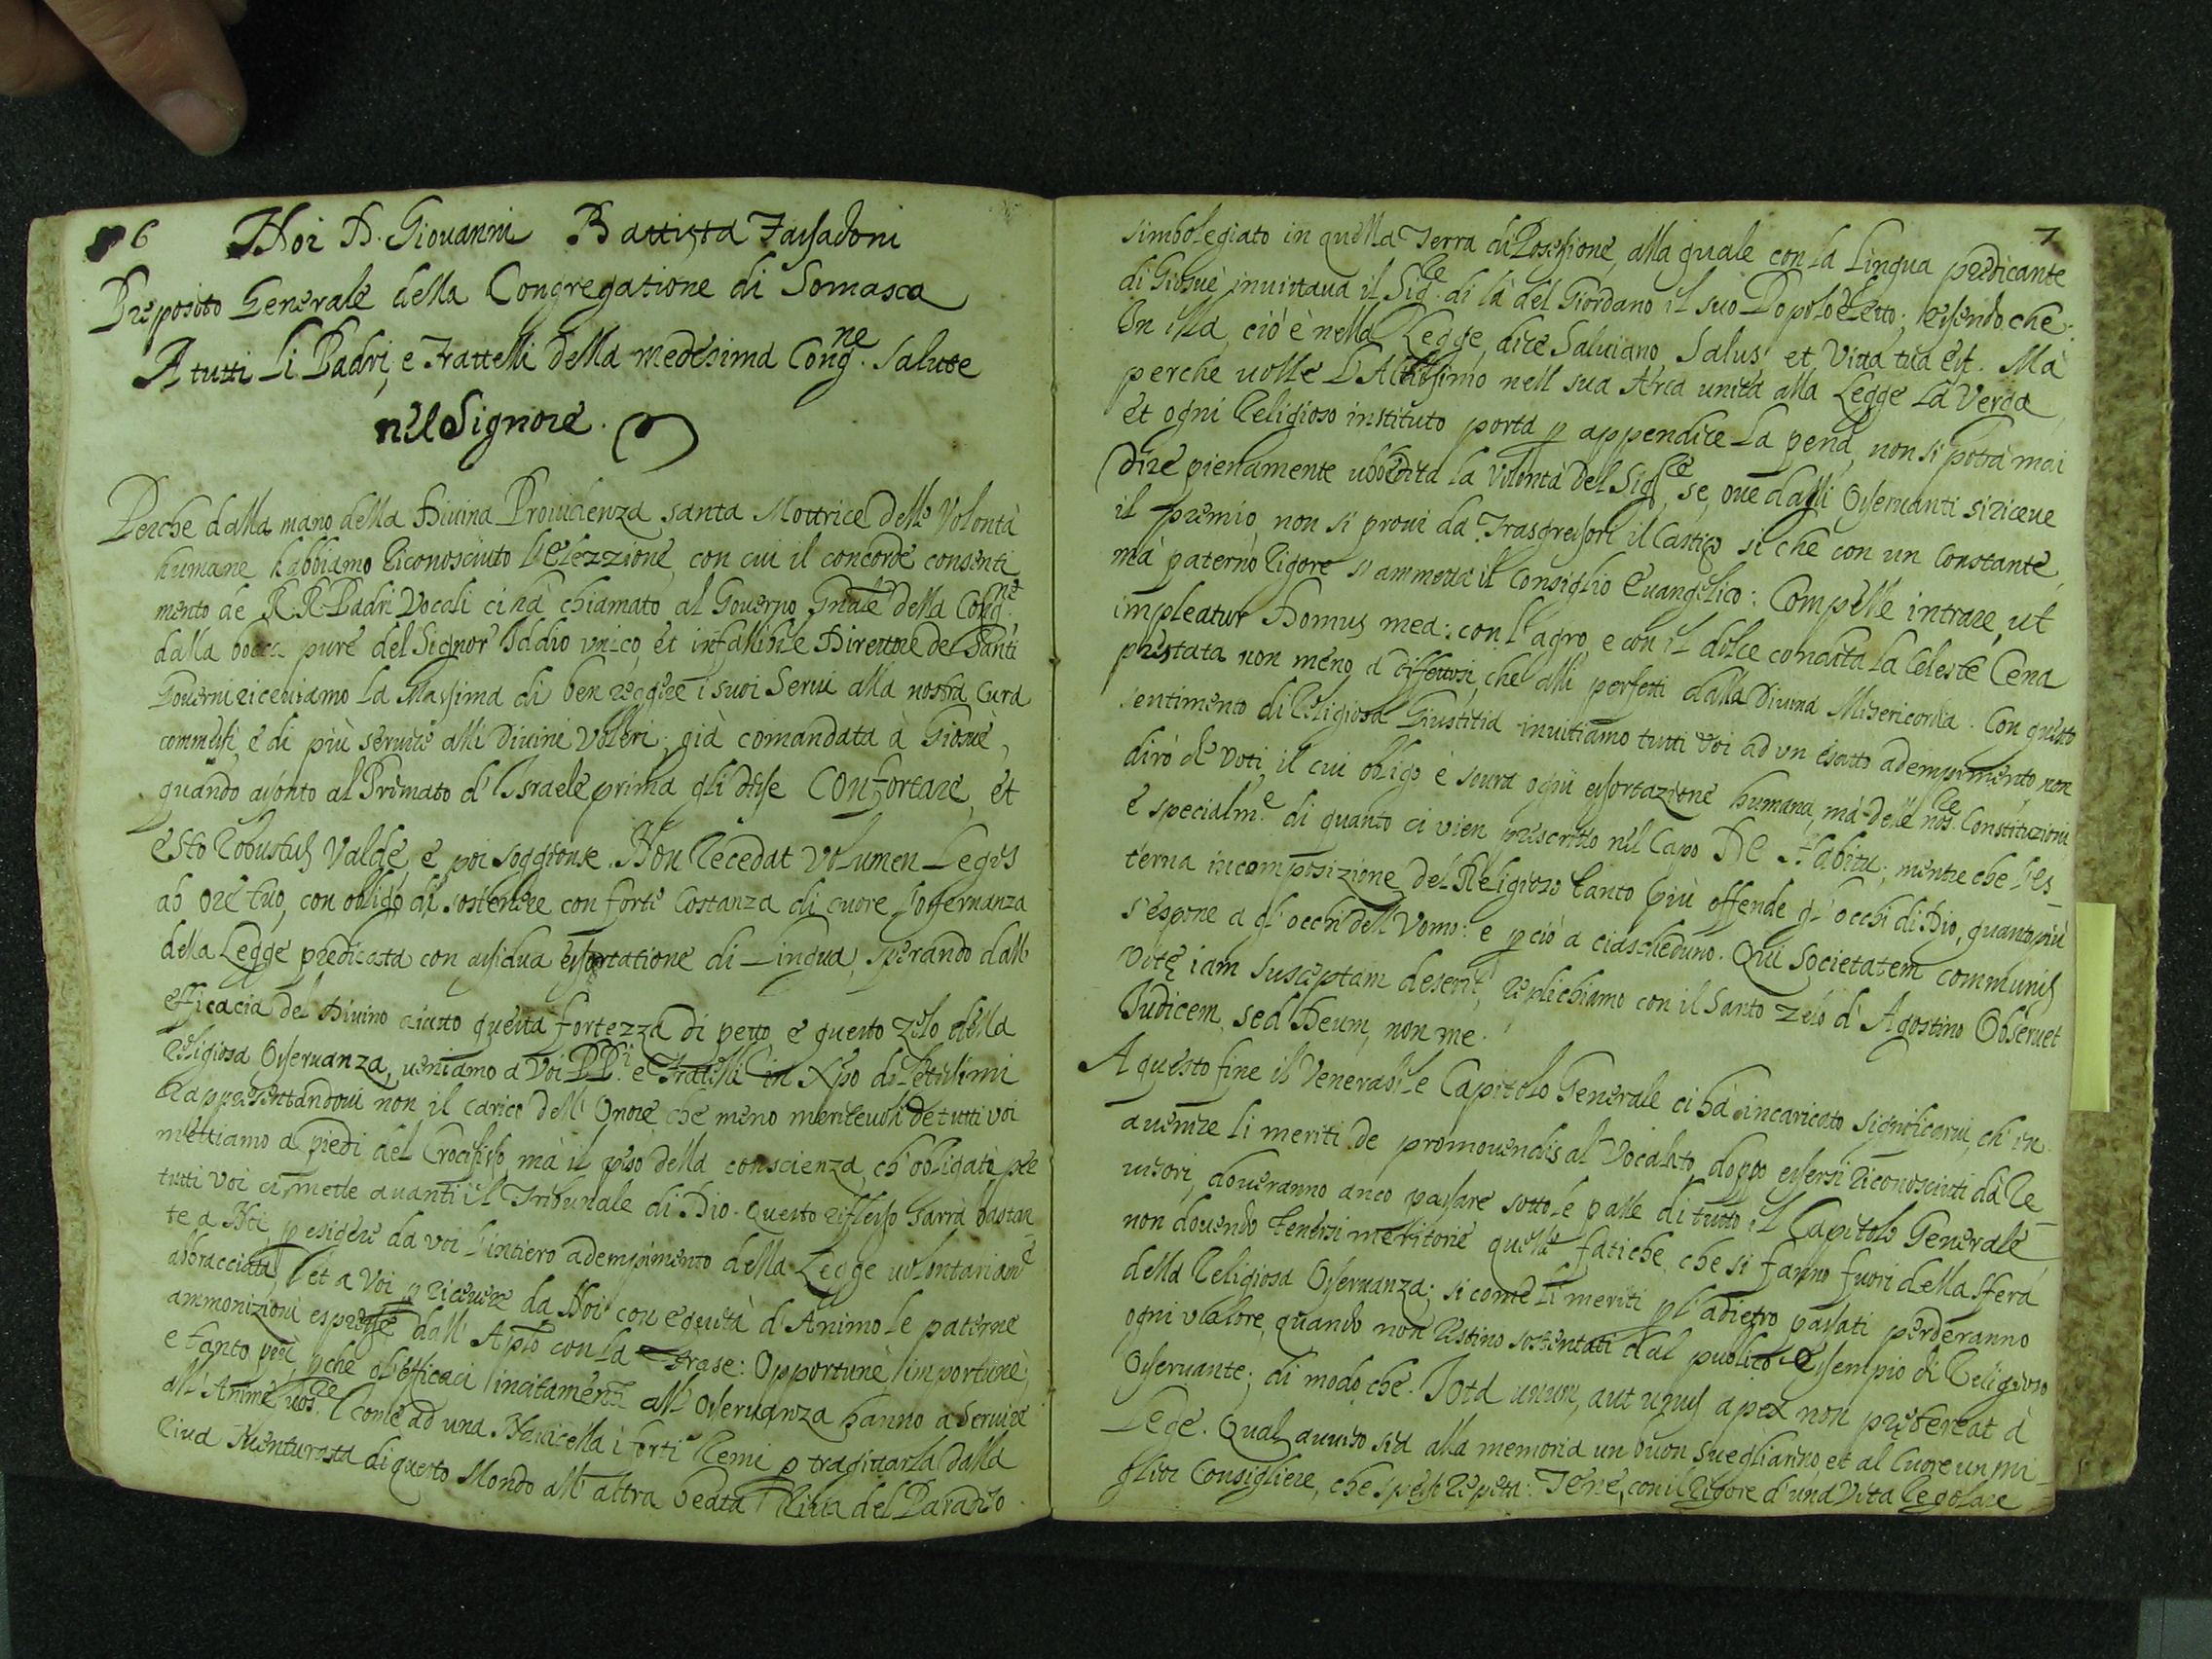 6
Noi D. Giovanni Battista Fassadoni
Preposito Generale della Congregatione di Somasca
A tutti li Padri, e Frattelli della medesima Cong.ne salute
nel Signore.
Perche dalla mano della Divina Providenza santa Mottrice delle Volontà
humane habbiamo riconosciuto l'elezzione, con cui il concorde consenti
mento de R.R. Padri Vocali ci hà chiamato al Governo Gnãle della Cong.ne
dalla bocca pure del Signor Iddio unico, et infallibile Direttore de Santi
Governi riceviamo la Massima di ben reggere i suoi Servi alla nostra Cura
commessi, e di più servire alli Divini Voleri, già comandata à Giosuè,
quando assonto al Primato d'Israele prima gli disse Confortare, et
esto robustus valde, e poi soggionse. Non recedat volumen Legis
ab ore tuo, con obligo di sostenere con forte Costanza di cuore l'osservanza
della Legge predicata con assidua essortatione di Lingua, sperando dall'
efficacia del Divino aiutto questa fortezza di petto, e questo zelo della
religiosa Osservanza, veniamo a Voi PP.i e Fratelli in Xpo dilettissimi
rappresentandovi non il carico dell'Onore che meno meritevoli de tutti voi
mettiamo a piedi del Crocifisso, mà il peso della conscienza, ch'obligata per
tutti Voi ci mette avanti il Tribunale di Dio. Questo riflesso sarrà bastan
te a Noi p esigere da voi l'intiero adempimento della Legge volontariam.e
abbracciata, et a Voi p ricevere da Noi con equità d'Animo le paterne
ammonizioni espresse dall'Aplo con la Frase: Opportunè, importunè,
e tanto più, pche ofefficaci incitamenti all'Osservanza hanno a servire
all'Anime vos.re come ad una Navicella i forti Remi p tragittarla dalla
Riva sventurata di questo Mondo all'altra beata Riva del Paradiso.
7
simbolegiato in quella Terra di Possessione, alla quale con la Lingua predicante
di Giosuè invittava il Sig.re di là del Giordano il suo Popolo eletto; essendo che:
In illa, ciò è nella Legge, dice Salviano, Salus, et Vita tua est. Mà
perche volle L'Altissimo nell sua Arca unita alla Legge la Verga,
et ogni Religioso instituto porta p appendice la pena, non si potrà mai
dire pienamente ubbedita la Volontà del Sig.re, se, ove dalli Osservanti si riceve
il premio non si provi da Trasgressori il Castigo si che con un constante,
mà paterno rigore s'ammetta il Consiglio Evangelico: Compelle intrare, ut
impleatur Domus mea: con l'agro, e con il dolce condita la Celeste Cena
prestata non meno a diffettosi, che alli perfetti dalla Divina Misericordia. Con questo
sentimento di Religiosa Giustitia invitiamo tutti Voi ad un esatto adempimento, non
dirò de Voti, il cui obligo è sovra ogni essortazione humana, mà delle nos.re Constituzioni,
e specialm.e di quanto ci vien prescritto nel Capo De Habitu; mentre che l'es-
terna incomposizione del Religioso tanto più offende gl'occhi di Dio, quanto più
s'espone a gl'occhi dell'Vomo: e pciò a ciascheduno. Qui societatem communis
vitę iam susceptam deserit, replichiamo con il Santo zelo d'Agostino Observet
Iudicem, sed Deum, non me.
A questo fine il Venerabile Capitolo Generale ci hà incaricato significarvi, ch'in
avenire li meriti de promovendis al Vocalato, doppo essersi riconosciuti dà Re-
visori, doveranno anco passare sotto le palle di tutto il Capitolo Generale,
non dovendo tenersi meritorie quelle fatiche, che si fanno fuori della sfera
della Religiosa Osservanza; si come li meriti p l'adietro passati perderanno
ogni valore, quando non restino sostentati dal publico Essempio di Religioso
Osservante; di modo che. Iota unum, aut unus apex non prętereat à
Lege. Qual avviso sia alla memoria un buon svegliarino, et al Cuore un mi-
glior Consigliere, che spesso repeta: Tene, con il rigore d'una Vita Regolare